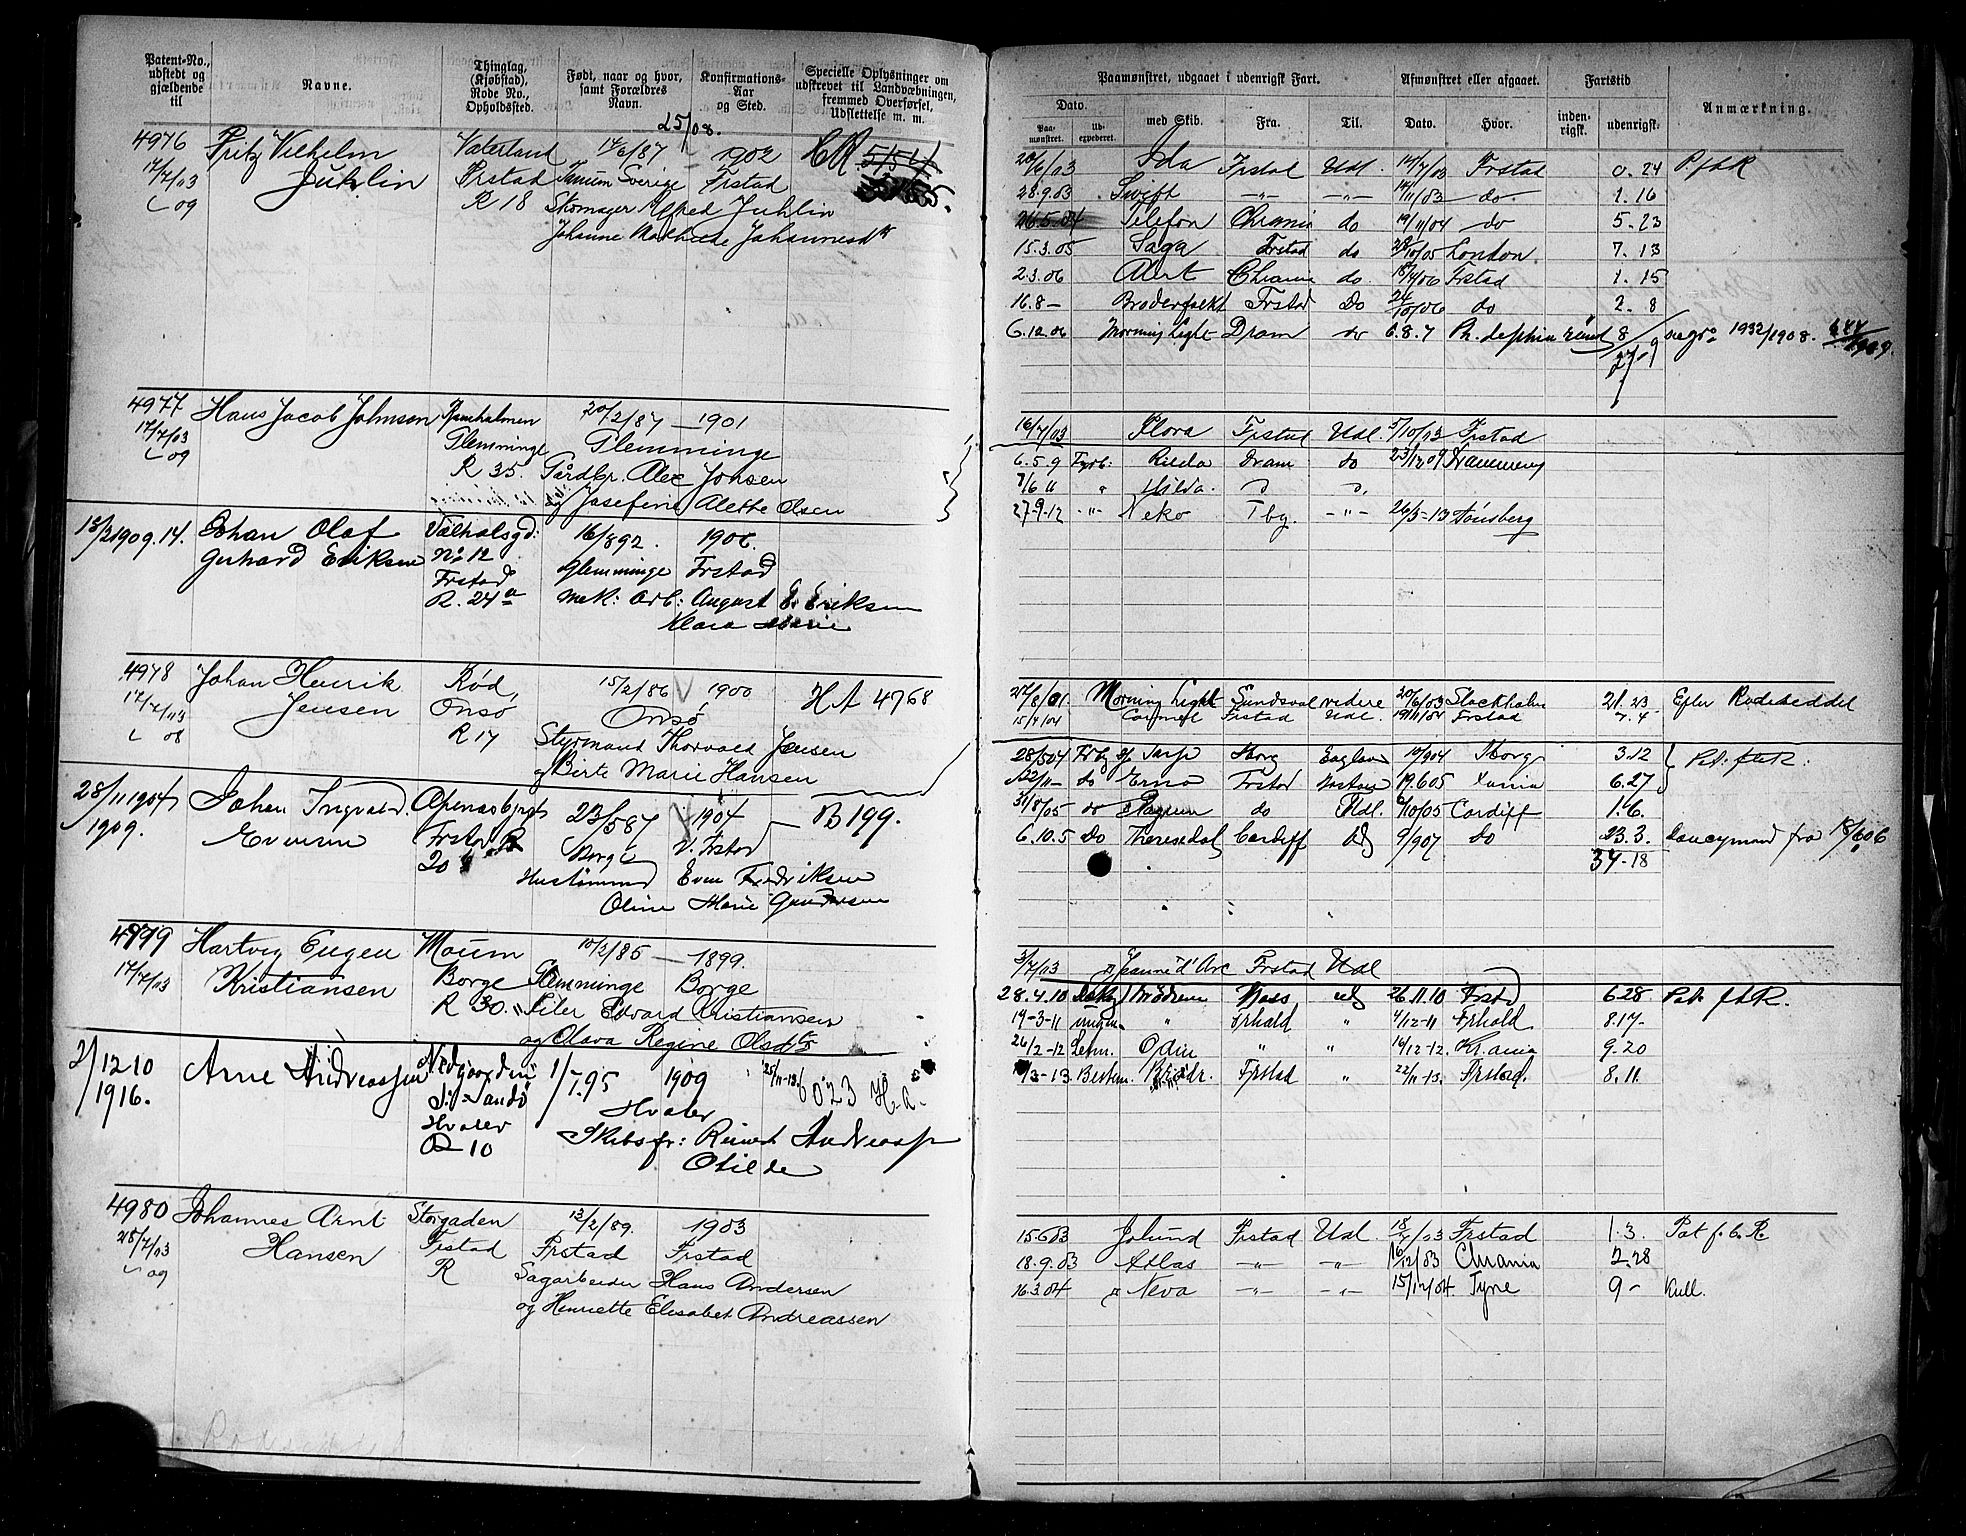 Patent-No., udstedt og gjældende til
Navne.
Thinglag, (Kjøbstad), Rode No., Opholdssted.
Født, naar og hvor, samt Forældres Navn.
Konfirmations-Aar og Sted.
Specielle Oplysninger om udskrevet til Landvæbningen, fremmed Overførsel, Udslettelse m. m.
Paamønstret, udgaaet i udenrigsk Fart.
Afmønstret eller afgaaet.
Fartstid
Anmærkning.
Dato.
Paamønstret.
Udexpederet.
med Skib.
Fra.
Til.
Dato.
Hvor.
indenrigsk.
udenrigsk.
25/08.
4976 Fritz Vilhelm Vaterland 17/6/87 1902
17/7/03 Juhlin Frstad Tanum Sverige Frstad
09 R 18 Skomager Alfred Juhlin
Johanne Mathilde
4977 Hans Jacob Johnson 20/2/87 — 1901
17/7/03 Glemminge Glemminge
09 R 35. Gårdbr. Alex Jonsen
og Josefine Alette Olsen
13/2 1909. 14. Johan Olaf Valhalsgd: 16/892. 1906.
Gerhard Eriksen No 12 Glemminge Frstad
Frstad
R. 24a Mek: Arb: August E. Eriksen
Klara Marie
4978 Johan Henrik Rød, 15/2/86 1900 HA 4768
17/7/03 Jensen Onsø Onsø
08 R 17 Styrmand Thorvald Jensen
og Birte Marie Hansen
28/11 1904 Johan Ingvald 23/587 1904 — B 199.
1909. Evensen Frstad R Borge V. Frstad
20 Even Fredriksen
Oline Marie Gundersen
4979 Hartvig Eugen Moum 10/2/85 — 1899.
17/7/03 Kristiansen Borge Glemminge Borge
R 30. Edvard Kristiansen
og Clara Regine Olsdtr
2/12 10 Arne Andreassen 1/7.95 1909 25/11-13. 6023 H.a.
1916. Hvaler
Hvaler Skibsfr: Reinert Andreassen
R 10 Otilde
4980 Johannes Arnt Storgaden 13/2/89. 1903
25/7/03 Hansen Frstad Frstad Frstad
09 R Sagarbeider Hans Andersen
og Henriette Elisabet Andreassen
20/6/03 Ida Frstad Udl. 14/7/03 Frstad 0. 24 P.f.b.R
28.9.03 Swift —"— —"— 14/11/03 do 1. 16
26.5.04 Telefon Chrania do 19/11/04 do 5. 23
15.3.05 Saga Frstad do 28/10/05 London 7. 13
2.3.06 Alert Chrania do. 18/4/06 Frstad 1. 15
16.8 — Broderfolket Frstad Do 24/10/06 do 2. 8
6.12.06 Morning Light Dram do 6.8.7 8 1932/1908.
27. 9
16/7/03 Flora Frstad Udl. 5/10/03 Frstad
6.5.9 Fyrb: Rilda Dram do 23/12 09 Drammen
7/6 11 " Hilda.
27.9.12 -"- Neko Tbg. -"- 26/3-13 Tønsberg
27/8/01. Morning Light Sundsval videre 20/6/03 Stockholm 21. 23 Efter Rodeseddel
15/4/04 Carmel Frstad Udl. 19/11/04 Frstad 7. 4
28/504 Borg England 10/904 Borg 3.12 Pat. f.b.R.
22/11— do Erna Frstad 19.605 6.27
31/8/05 do do Udl. 9/10/05 Cardiff 1.6.
6.10.5 Do Cardiff 9/907 do 23.3. 18/606
34-18
3/7/03 Jeanne d'Arc Frstad Udl
28.4.10 Moss 26.11.10 Frstad 6.28 Pat. f.b.R.
19-3-11 " Frhald " 4/12-11 Frhald 8.17-
26/2-12 Letm. Odin " " 16/12-12. Kr.ania 9-20
/3-13. Bestem. Frstad " 22/11-13. Frstad. 8.11.
15.6.03 Jylund Frstad Udl 18/ /03 Frstad 1. 3. Pat f. b. R.
18.9.03 Atlas —"— —"— 16/12/03 Chrania 2.28
16.3.04 Neva —"— —"— 15/12/04 Tyne 9 - Kull.